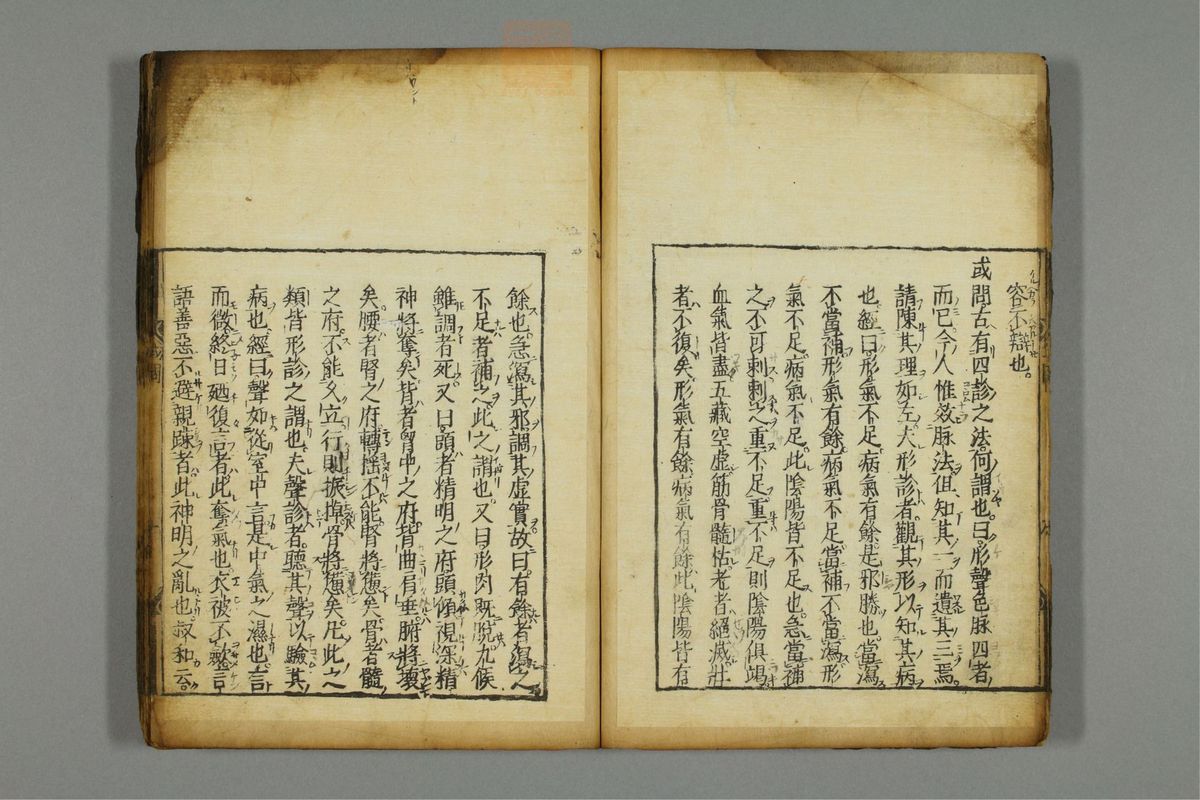 容不辯也。
或問。古有四診之法。何謂也。曰。形聲色脉四者
而已。今人惟效脉法。但知其一而遺其三焉。
請陳其理如左。夫形診者觀其形以知其病
也。經曰。形氣不足。病氣有餘。是邪勝也。當瀉
不當補。形氣有餘。病氣不足。當補不當瀉。形
氣不足。病氣不足。此陰陽皆不足也。急當補
之不可刺。刺之重不足。重不足則陰陽俱竭。
血氣皆盡。五藏空虛。筋骨髓枯。老者絕滅。壯
者不復矣。形氣有餘。病氣有餘。此陰陽皆有
餘也。急瀉其邪。調其虛實。故曰。有餘者瀉之
不足者補之。此之謂也。又曰。形肉既脫。九候
雖調者死。又曰。頭者精明之府。頭傾視深。精
神將奪矣。背者胷中之府。背曲肩垂。腑將壞
矣。腰者腎之府。轉搖不能。腎將憊矣。骨者髓
之府。不能久立。行則振掉。骨將憊矣。凡此之
類皆形診之謂也。夫聲診者。聽其聲以驗其
病也。經曰。聲如從室中言。是中氣之濕也。言
而微。終日廼復言者。此奪氣也。衣被不斂。言
語善惡不避親踈者。此神明之亂也。叔和云。